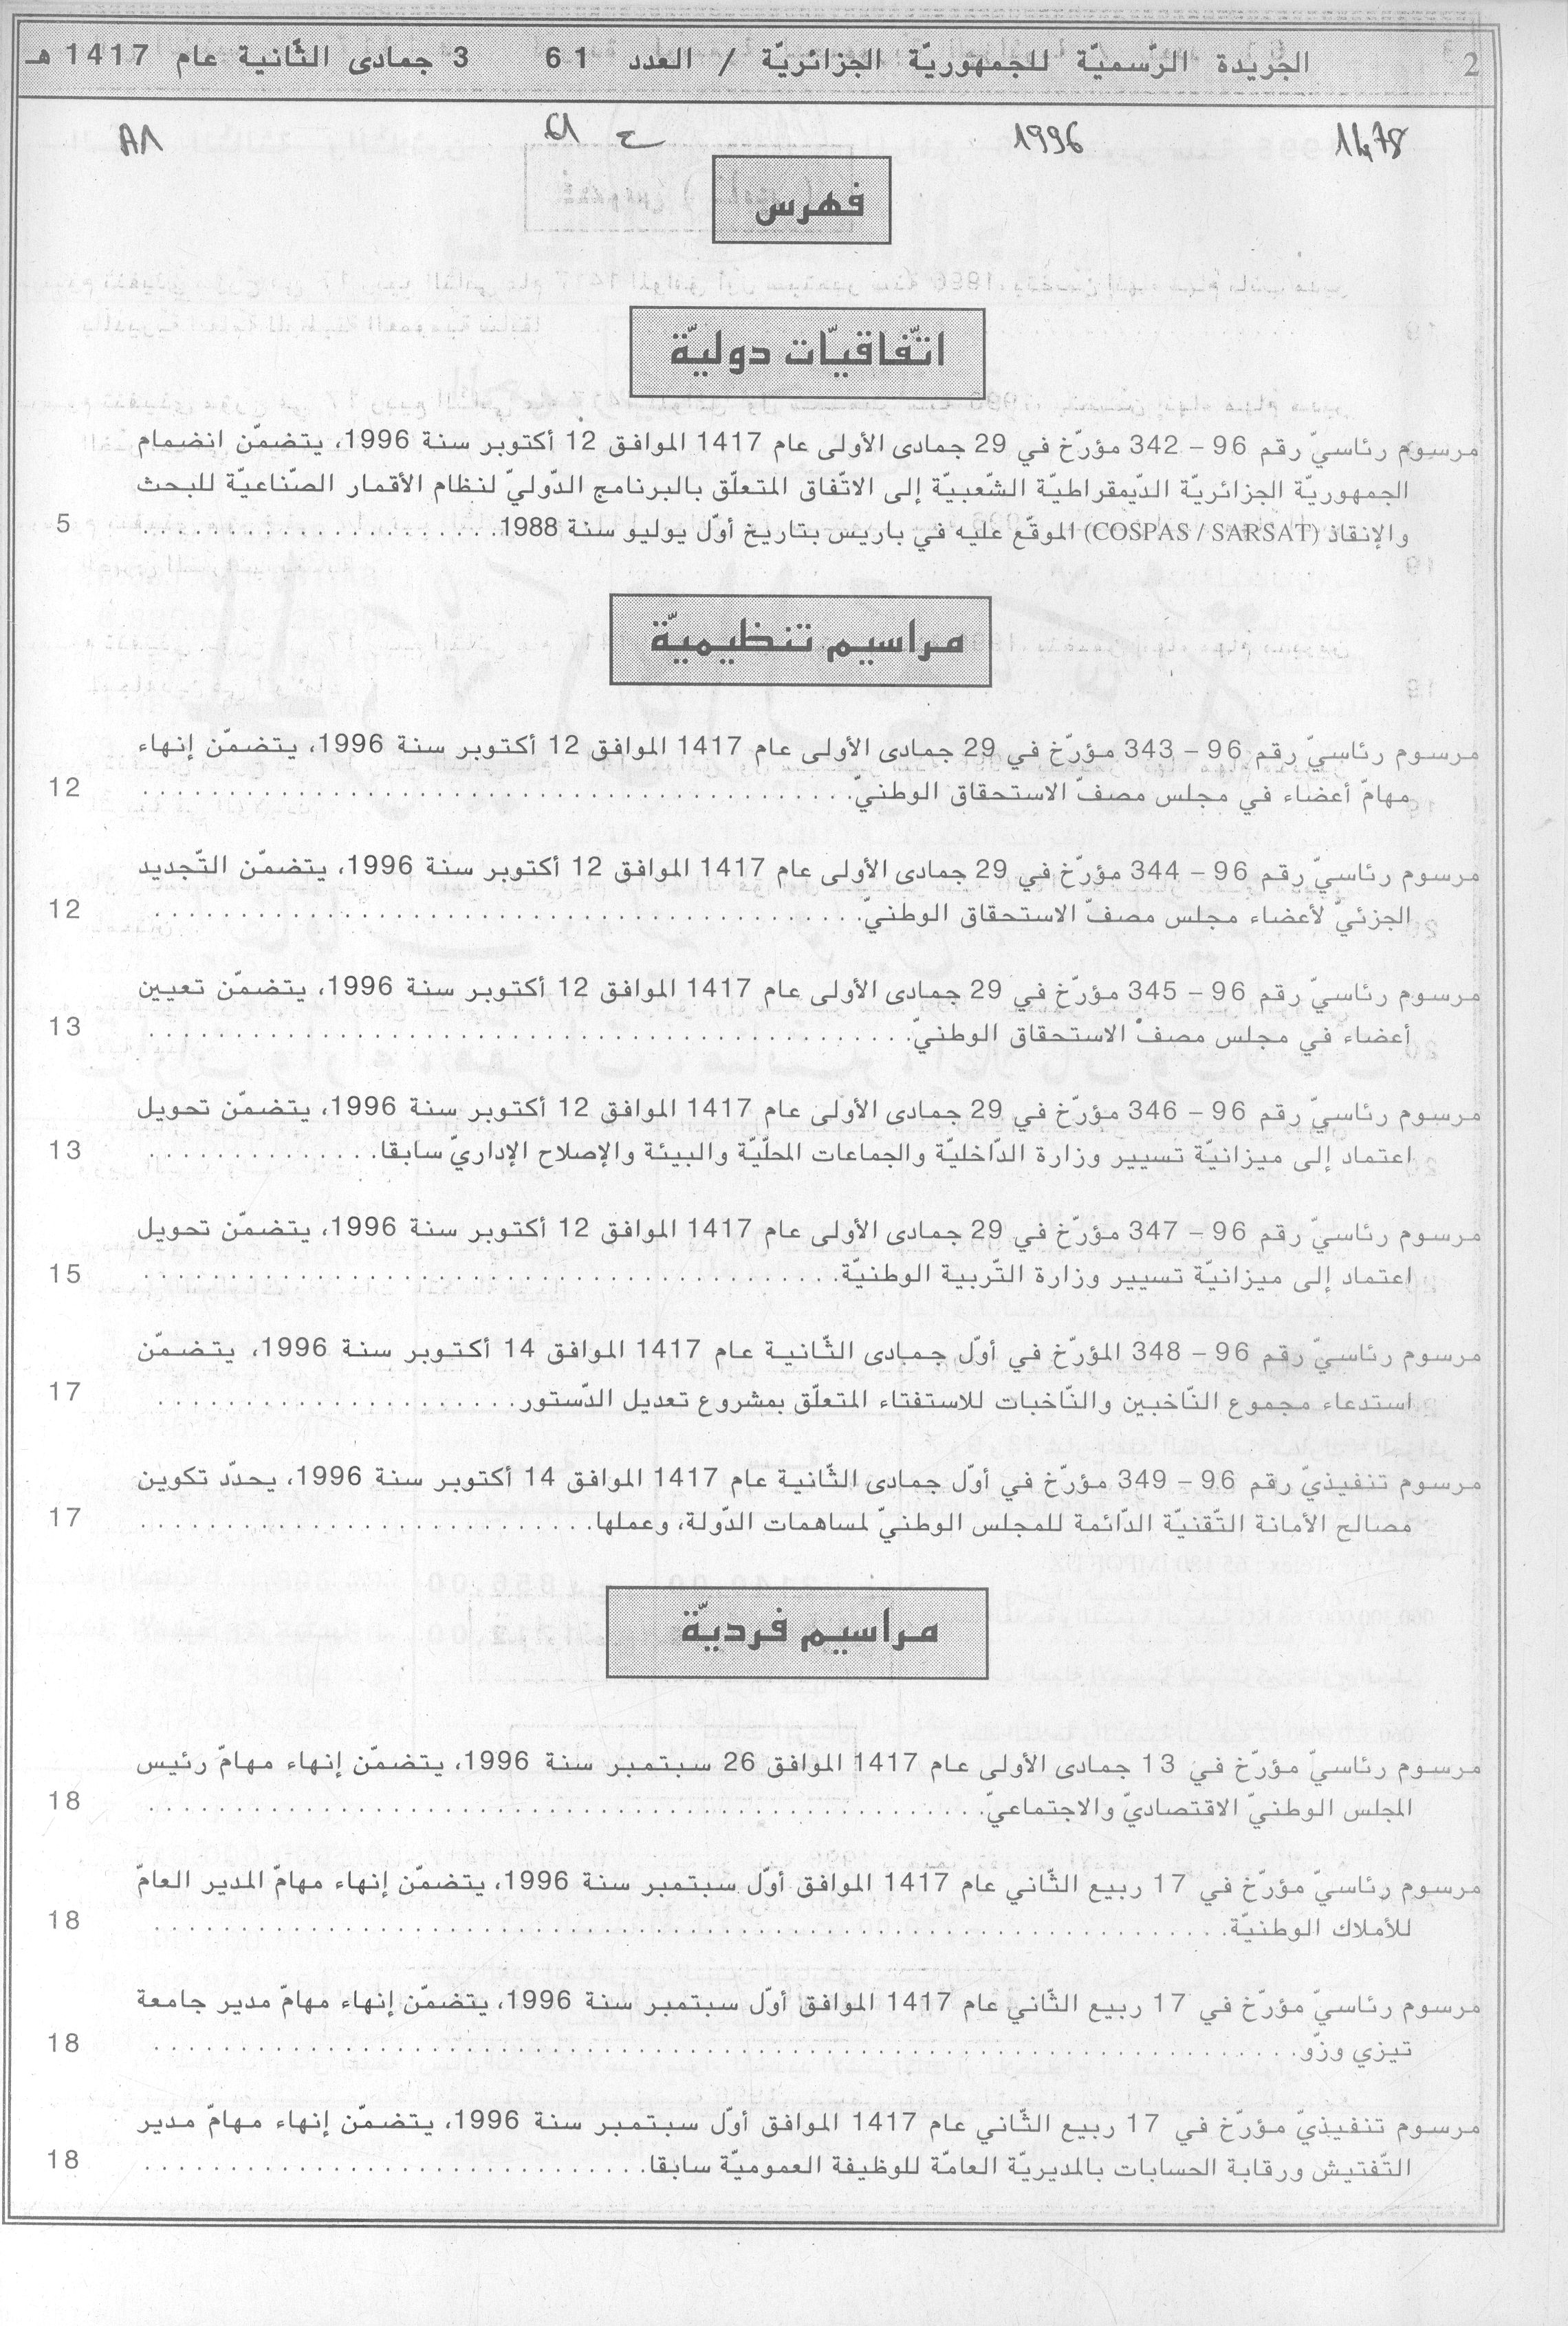 2 الجريدة الرّسميّة للجمهوريّة الجزائريّة / العدد 61 3 جمادى الثّانية عام 1417 هـ
1478 1996 ع 61 A1
فهرس
اتّفاقيّات دوليّة
مرسوم رئاسيّ رقم 96 – 342 مؤرّخ في 29 جمادى الأولى عام 1417 الموافق 12 أكتوبر سنة 1996، يتضمّن انضمام
الجمهوريّة الجزائريّة الدّيمقراطيّة الشّعبيّة إلى الاتّفاق المتعلّق بالبرنامج الدّوليّ لنظام الأقمار الصّناعيّة للبحث
والإنقاذ (COSPAS / SARSAT) الموقّع عليه في باريس بتاريخ أوّل يوليو سنة 1988. . . . . . . . . . . . . . . . . . . . 5
مراسيم تنظيميّة
مرسوم رئاسيّ رقم 96 – 343 مؤرّخ في 29 جمادى الأولى عام 1417 الموافق 12 أكتوبر سنة 1996، يتضمّن إنهاء
مهامّ أعضاء في مجلس مصفّ الاستحقاق الوطنيّ. . . . . . . . . . . . . . . . . . . . 12
مرسوم رئاسيّ رقم 96 – 344 مؤرّخ في 29 جمادى الأولى عام 1417 الموافق 12 أكتوبر سنة 1996، يتضمّن التّجديد
الجزئيّ لأعضاء مجلس مصفّ الاستحقاق الوطنيّ. . . . . . . . . . . . . . . . . . . . 12
مرسوم رئاسيّ رقم 96 – 345 مؤرّخ في 29 جمادى الأولى عام 1417 الموافق 12 أكتوبر سنة 1996، يتضمّن تعيين
أعضاء في مجلس مصفّ الاستحقاق الوطنيّ. . . . . . . . . . . . . . . . . . . . 13
مرسوم رئاسيّ رقم 96 – 346 مؤرّخ في 29 جمادى الأولى عام 1417 الموافق 12 أكتوبر سنة 1996، يتضمّن تحويل
اعتماد إلى ميزانيّة تسيير وزارة الدّاخليّة والجماعات المحلّيّة والبيئة والإصلاح الإداريّ سابقا. . . . . . . . . . . . . . 13
مرسوم رئاسيّ رقم 96 – 347 مؤرّخ في 29 جمادى الأولى عام 1417 الموافق 12 أكتوبر سنة 1996، يتضمّن تحويل
اعتماد إلى ميزانيّة تسيير وزارة التّربية الوطنيّة. . . . . . . . . . . . . . . . . . . . 15
مرسوم رئاسيّ رقم 96 – 348 المؤرّخ في أوّل جمادى الثّانية عام 1417 الموافق 14 أكتوبر سنة 1996، يتضمّن
استدعاء مجموع النّاخبين والنّاخبات للاستفتاء المتعلّق بمشروع تعديل الدّستور. . . . . . . . . . . . . . . . . . . . 17
مرسوم تنفيذيّ رقم 96 – 349 مؤرّخ في أوّل جمادى الثّانية عام 1417 الموافق 14 أكتوبر سنة 1996، يحدّد تكوين
مصالح الأمانة التّقنيّة الدّائمة للمجلس الوطنيّ لمساهمات الدّولة، وعملها. . . . . . . . . . . . . . . . . . . . 17
مراسيم فرديّة
مرسوم رئاسيّ مؤرّخ في 13 جمادى الأولى عام 1417 الموافق 26 سبتمبر سنة 1996، يتضمّن إنهاء مهامّ رئيس
المجلس الوطنيّ الاقتصاديّ والاجتماعيّ. . . . . . . . . . . . . . . . . . . . 18
مرسوم رئاسيّ مؤرّخ في 17 ربيع الثّاني عام 1417 الموافق أوّل سبتمبر سنة 1996، يتضمّن إنهاء مهامّ المدير العامّ
للأملاك الوطنيّة. . . . . . . . . . . . . . . . . . . . 18
مرسوم رئاسيّ مؤرّخ في 17 ربيع الثّاني عام 1417 الموافق أوّل سبتمبر سنة 1996، يتضمّن إنهاء مهامّ مدير جامعة
تيزي وزّو. . . . . . . . . . . . . . . . . . . . 18
مرسوم تنفيذيّ مؤرّخ في 17 ربيع الثّاني عام 1417 الموافق أوّل سبتمبر سنة 1996، يتضمّن إنهاء مهامّ مدير
التّفتيش ورقابة الحسابات بالمديريّة العامّة للوظيفة العموميّة سابقا. . . . . . . . . . . . . . . . . . . . 18